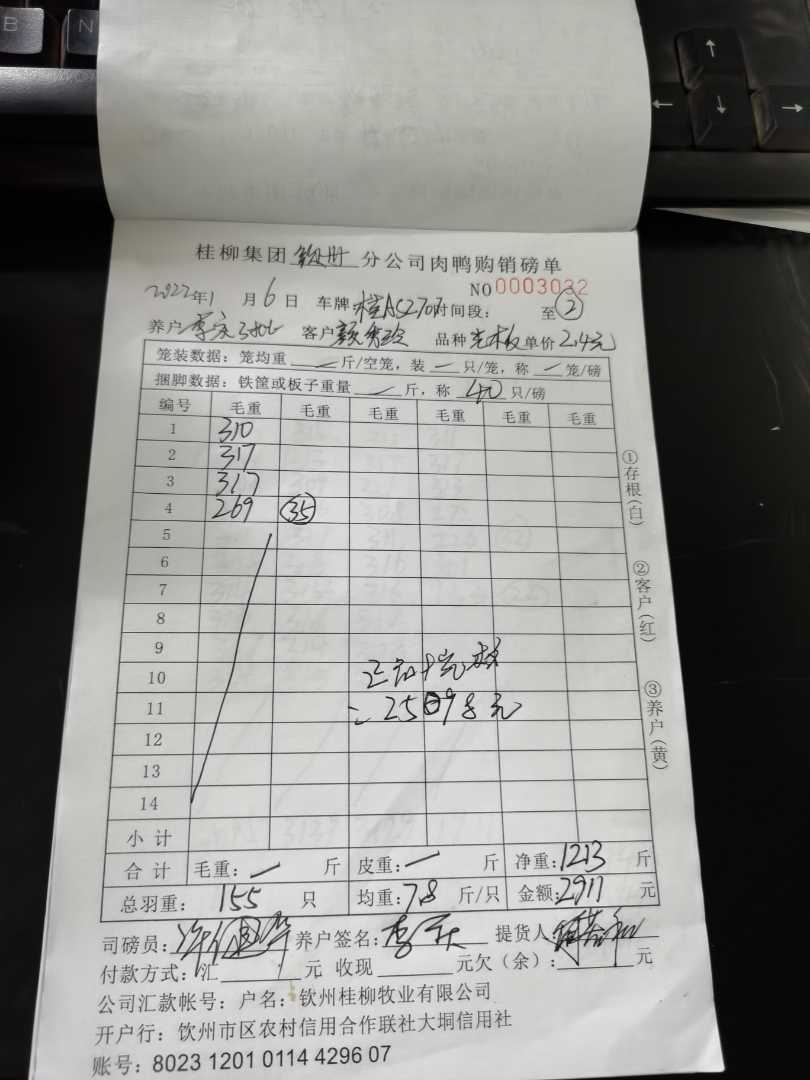 B N
↑
← ↓ →
桂柳集团 钦州 分公司肉鸭购销磅单
NO 0003032
2022年1月6日 车牌 桂AS270 时间段: 至②
养户 客户 颜秀玲 品种 光板 单价 2.4元
笼装数据:笼均重 一 斤/空笼,装 一 只/笼,称 一 笼/磅
捆脚数据:铁筐或板子重量 一 斤,称 40 只/磅
编号 毛重 毛重 毛重 毛重 毛重 毛重
1 310
2 317
3 317
4 269 ㉟
5
6
7
8
9
10
11
12
13
14
小计
合计 毛重: 一 斤 皮重: 一 斤 净重: 1213 斤
总羽重: 155 只 均重: 7.8 斤/只 金额: 2911 元
司磅员: 养户签名: 提货人
付款方式:汇 元 收现 元欠(余): 元
公司汇款帐号:户名:钦州桂柳牧业有限公司
开户行:饮州市区农村信用合作联社大垌信用社
账号:8023 1201 0114 4296 07
①存根(白)
②客户(红)
③养户(黄)